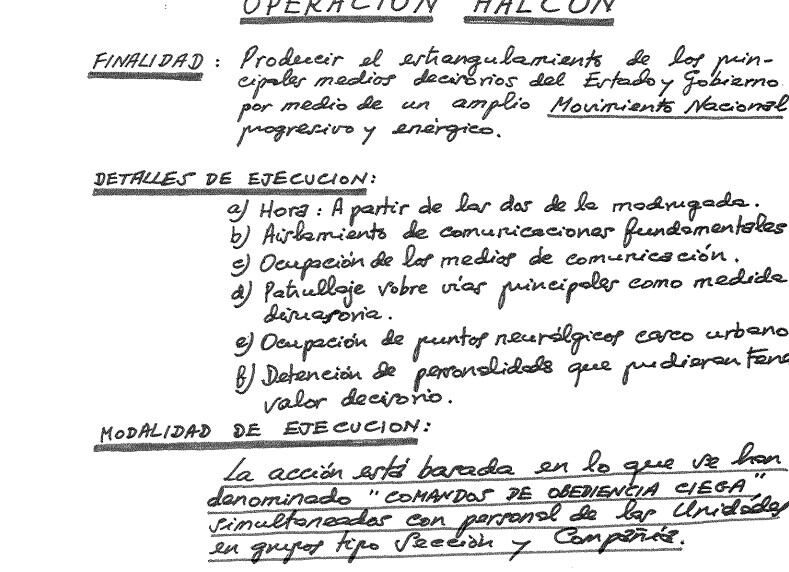 OPERACION HALCON
FINALIDAD : Producir el estrangulamiento de los prin-
cipales medios decisorios del Estado y Gobierno
por medio de un amplio Movimiento Nacional
progresivo y enérgico.
DETALLES DE EJECUCION:
a) Hora : A partir de las dos de la madrugada.
b) Aislamiento de comunicaciones fundamentales
c) Ocupación de los medios de comunicación.
d) Patrullaje sobre vías principales como medida
disuasoria.
e) Ocupación de puntos neurálgicos casco urbano
f) Detención de personalidades que pudieran tene
valor decisorio.
MODALIDAD DE EJECUCION:
La acción está basada en lo que se han
denominado "COMANDOS DE OBEDIENCIA CIEGA"
simultaneados con personal de las Unidades
en grupos tipo Sección y Compañía.